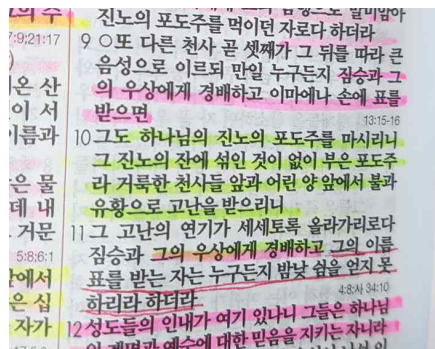 의 수
7:9;21:17
온 산
이 서
이름과
은 물
데 내
거문
5:8;6:1
앞에서
은 십
자가
진노의 포도주를 먹이던 자로다 하더라
9 ○또 다른 천사 곧 셋째가 그 뒤를 따라 큰
음성으로 이르되 만일 누구든지 짐승과 그
의 우상에게 경배하고 이마에나 손에 표를
받으면
13:15-16
10 그도 하나님의 진노의 포도주를 마시리니
그 진노의 잔에 섞인 것이 없이 부은 포도주
라 거룩한 천사들 앞과 어린 양 앞에서 불과
유황으로 고난을 받으리니
11 그 고난의 연기가 세세토록 올라가리로다
짐승과 그의 우상에게 경배하고 그의 이름
표를 받는 자는 누구든지 밤낮 쉼을 얻지 못
하리라 하더라
4:8;사 34:10
12 성도들의 인내가 여기 있나니 그들은 하나님
의 계명과 예수에 대한 믿음을 지키는 자니라